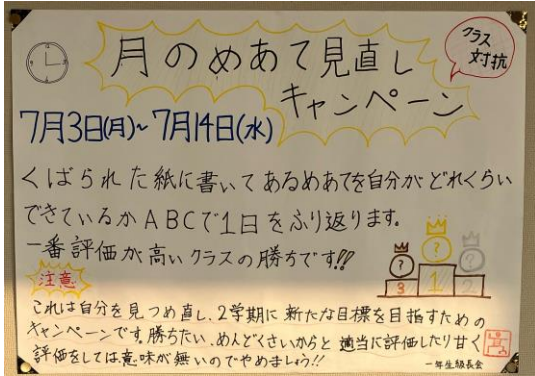 月のめあて見直し
キャンペーン
クラス
対抗
7月3日(月)~7月14日(水)
くばられた紙に書いてあるめあてを自分がどれくらい
できているかABCで1日をふり返ります。
一番評価が高いクラスの勝ちです!!
? ? ?
3 1 2
注意
これは自分を見つめ直し、2学期に新たな目標を目指すための
キャンペーンです。勝ちたい、めんどくさいからと適当に評価したり甘く
評価をしては意味が無いのでやめましょう!!
一年生級長会